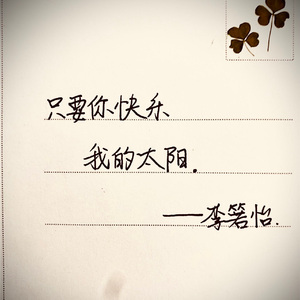 只要你快乐
我的太阳.
——李箬怡.